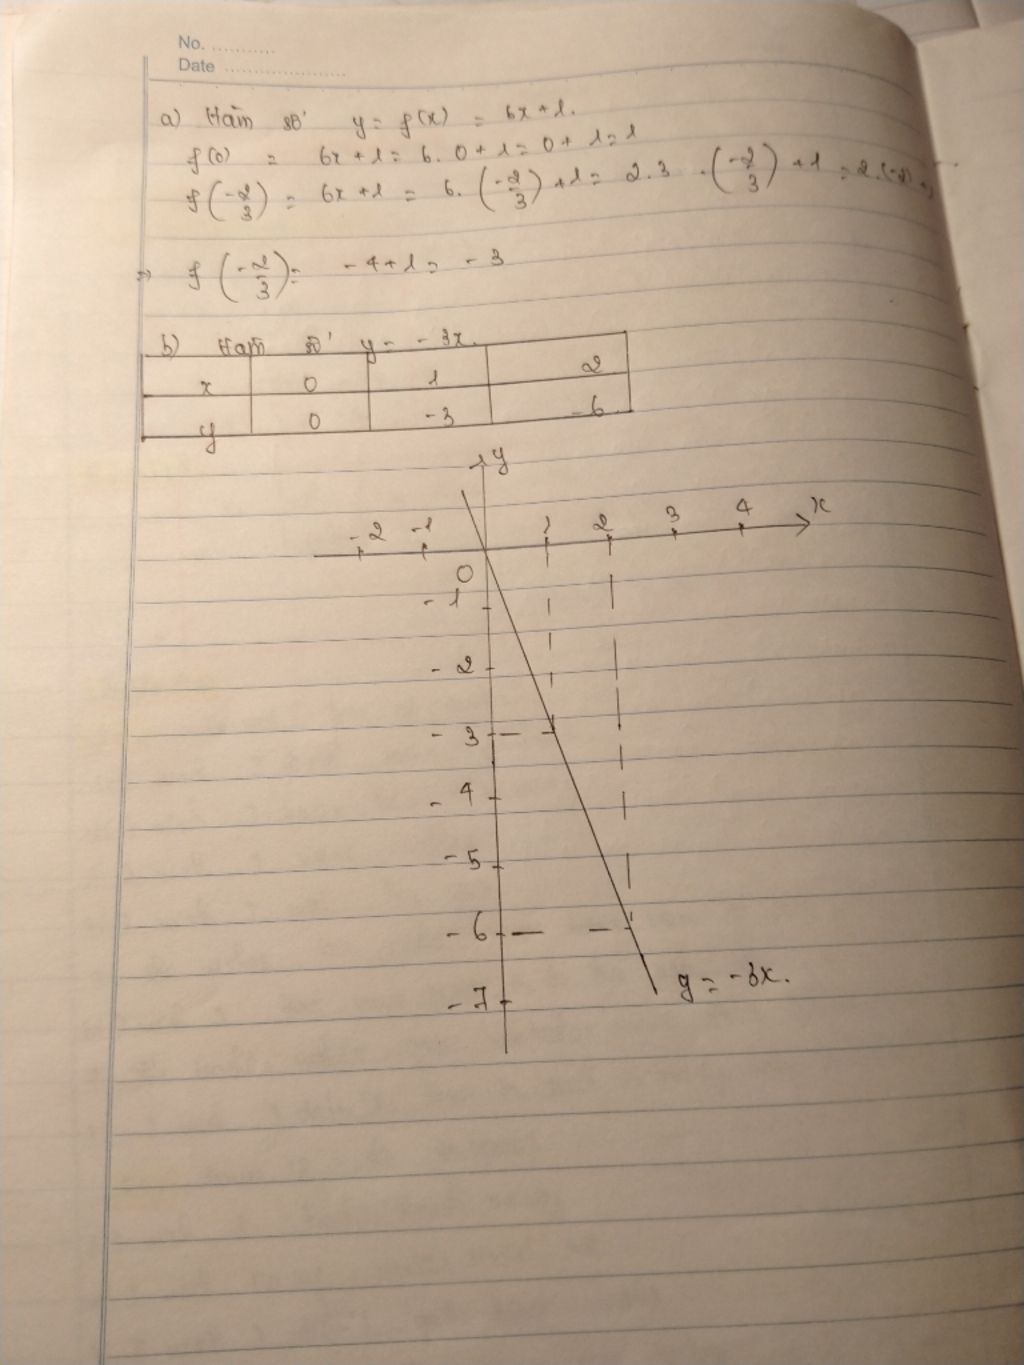 No. ...........
Date ......................
a) Hàm số y = f(x) = 6x + 1.
f(0) = 6x + 1 = 6. 0 + 1 = 0 + 1 = 1
f(-2/3) = 6x + 1 = 6. (-2/3) + 1 = 2.3 . (-2/3) + 1 = 2.(-2) +
=> f(-2/3) = -4 + 1 = -3
b) Hàm số y = -3x.
x 0 1 2
y 0 -3 -6
y
-2 -1 1 2 3 4 x
0
-1
-2
-3
-4
-5
-6
y = -3x.
-7